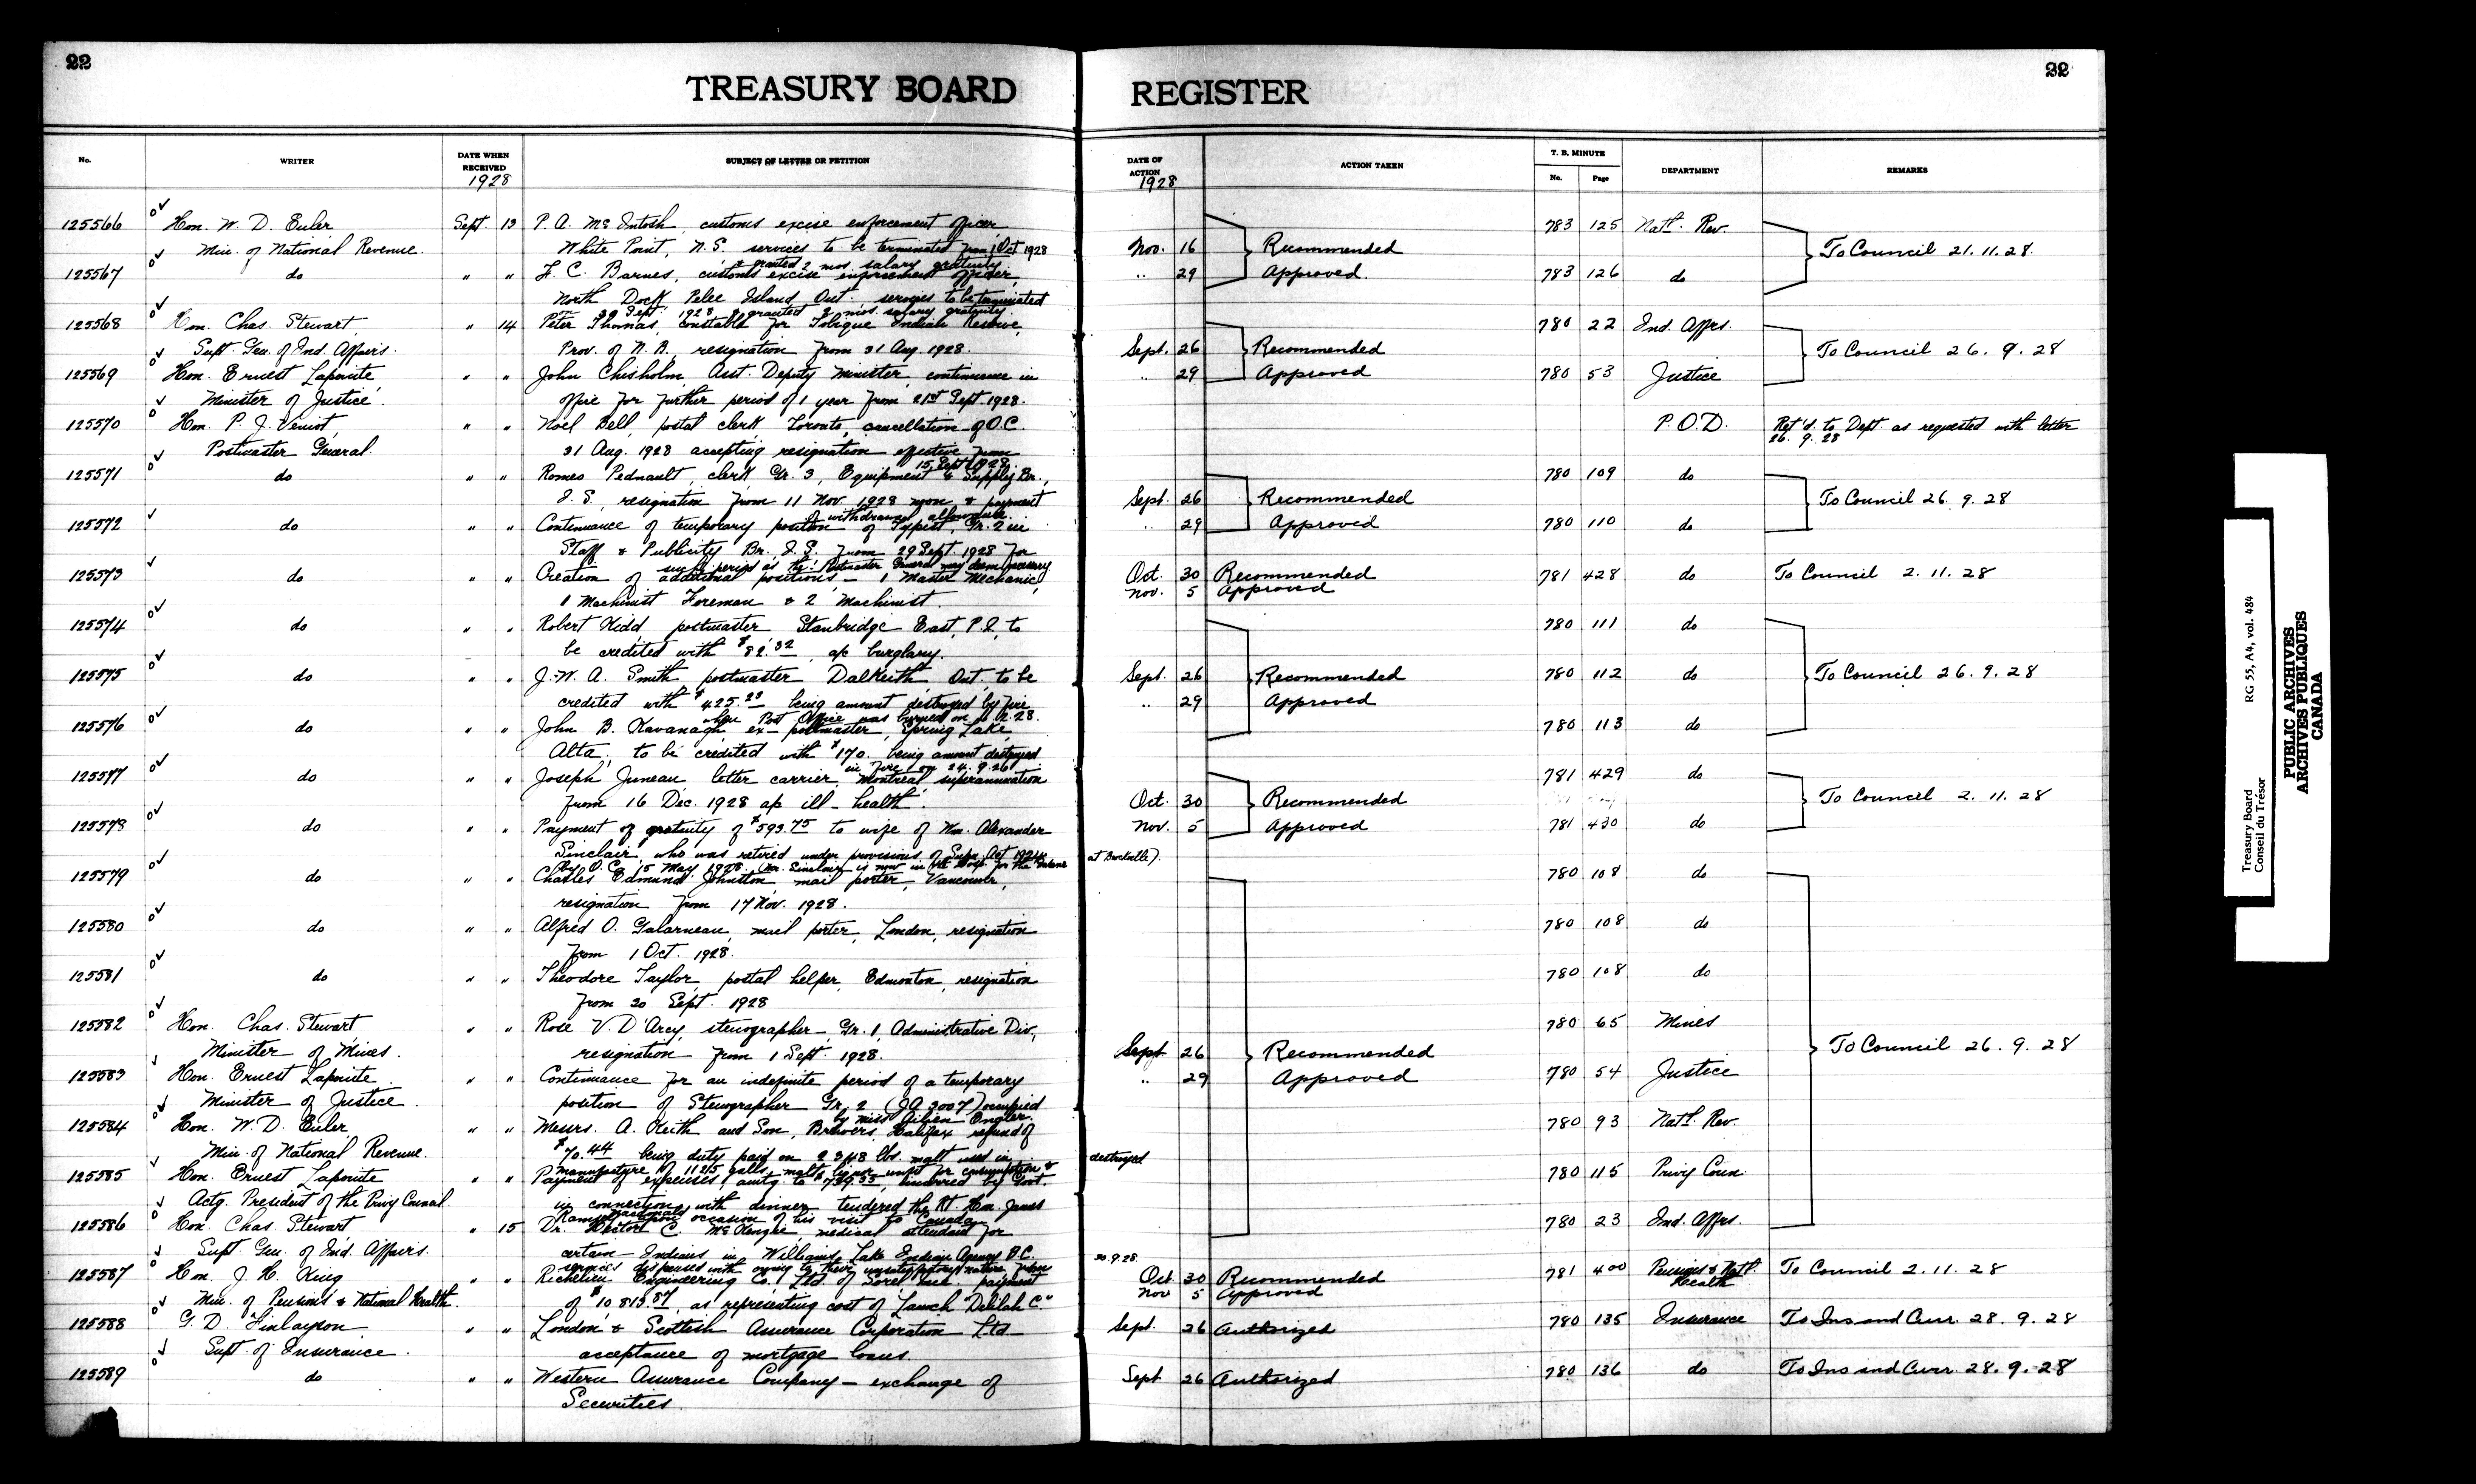 22
TREASURY BOARD
REGISTER
22
No.
WRITER
DATE WHEN RECEIVED
1928
SUBJECT OF LETTER OR PETITION
DATE OF ACTION
1928
ACTION TAKEN
T. B. MINUTE
No.
Page
DEPARTMENT
REMARKS
125566 Hon. W. D. Euler, Sept. 13 P. A. McIntosh, customs excise enforcement officer, 783 125 Natl. Rev.
Min. of National Revenue. White Point, N.S. services to be terminated from 1 Oct 1928 Nov. 16 Recommended To Council 21.11.28.
& granted 2 mos. salary gratuity
125567 do " " F. C. Barnes, customs excise enforcement officer, " 29 Approved. 783 126 do
North Dock, Pelee Island, Ont., services to be terminated
on 29 Sept. 1928 & granted 2 mos. salary gratuity.
125568 Hon. Chas. Stewart " 14 Peter Thomas, constable for Tobique Indian Reserve, 780 22 Ind. Affrs.
Supt. Gen. of Ind. Affairs. Prov. of N.B., resignation from 31 Aug. 1928. Sept. 26 Recommended To Council 26.9.28
125569 Hon. Ernest Lapointe, " " John Chisholm, Asst. Deputy Minister, continuance in " 29 Approved 780 53 Justice
Minister of Justice. office for further period of 1 year from 21st Sept. 1928.
125570 Hon. P. J. Veniot, " " Noel Bell, postal clerk Toronto, cancellation of O.C. P.O.D. Ret'd. to Dept. as requested with letter
26. 9. 28
Postmaster General. 31 Aug. 1928 accepting resignation effective from
15 Sept. 1928.
125571 do " " Romeo Pednault, clerk Gr. 3, Equipment & Supply Br., 780 109 do
I.S., resignation from 11 Nov. 1928 noon & payment Sept. 26 Recommended To Council 26.9.28
of withdrawal allowance
125572 do " " Continuance of temporary position of Typist, Gr. 2 in " 29 Approved 780 110 do
Staff & Publicity Br. I.S. from 29 Sept. 1928 for
such period as the Postmaster General may deem necessary
125573 do " " Creation of additional positions - 1 Master Mechanic, Oct. 30 Recommended 781 428 do To Council 2.11.28
1 Machinist Foreman & 2 Machinist. Nov. 5 Approved
125574 do " " Robert Kidd, postmaster, Stanbridge East, P.Q. to 780 111 do
be credited with $82.32 a/c burglary.
125575 do " " J. W. A. Smith, postmaster Dalkeith, Ont. to be Sept. 26 Recommended 780 112 do To Council 26.9.28
credited with $425.23 being amount destroyed by fire " 29 Approved
when Post Office was burned on
125576 do " " John B. Kavanagh, ex-postmaster, Spring Lake, 780 113 do
Alta, to be credited with $170. being amount destroyed
in fire on 24.9.26
125577 do " " Joseph Juneau, letter carrier, Montreal superannuation 781 429 do
from 16 Dec. 1928 a/c ill-health. Oct. 30 Recommended To Council 2.11.28
125578 do " " Payment of gratuity of $593.75 to wife of Wm. Alexander Nov. 5 Approved 781 430 do
Sinclair, who was retired under provisions of Supn. Act 1924
by O.C. 15 May, 1928. (Mr. Sinclair is now in the Hosp. for the Insane at Brockville).
125579 do " " Charles Edmund Johnston, mail porter, Vancouver, 780 108 do
resignation from 17 Nov. 1928.
125580 do " " Alfred O. Galarneau, mail porter, London, resignation 780 108 do
from 1 Oct. 1928.
125581 do " " Theodore Taylor, postal helper, Edmonton, resignation 780 108 do
from 20 Sept. 1928
125582 Hon. Chas. Stewart " " Rose V. D'Arcy, stenographer, Gr. 1, Administrative Div., 780 65 Mines
Minister of Mines. resignation from 1 Sept. 1928. Sept 26 Recommended To Council 26.9.28
125583 Hon. Ernest Lapointe " " Continuance for an indefinite period of a temporary " 29 Approved 780 54 Justice
Minister of Justice. position of Stenographer Gr. 2 (JA 3007) occupied
by Miss Engler.
125584 Hon. W. D. Euler, " " Messrs. A. Keith and Son, Brewers, Halifax refund of 780 93 Natl. Rev.
Min. of National Revenue. $70.44 being duty paid on 2348 lbs. malt used in
manufacture of 1125 galls. malt liquor unfit for consumption & destroyed
125585 Hon. Ernest Lapointe " " Payment of expenses amtg. to incurred by Govt. 780 115 Privy Coun.
Actg. President of the Privy Council. in connection with dinner tendered the Rt. Hon. James
Ramsay MacDonald upon occasion of his visit to Canada
125586 Hon. Chas. Stewart " 15 Dr. Hector C. McKenzie, medical attendant for 780 23 Ind. Affrs.
Supt. Gen. of Ind. Affairs. certain Indians in Williams Lake Indian Agency B.C.
services dispensed with owing to their unsatisfactory nature from 30.9.28.
125587 Hon. J. H. King " " Richelieu Engineering Co., Ltd. of Sorel Que. payment Oct 30 Recommended 781 400 Pensions & Natl. Health To Council 2.11.28
Min. of Pensions & National Health. of $10,813.87, as representing cost of Launch "Delilah C." Nov 5 Approved
125588 G. D. Finlayson " " London & Scottish Assurance Corporation Ltd Sept. 26 Authorized 780 135 Insurance To Ins and Curr. 28.9.28
Supt. of Insurance. acceptance of mortgage loans.
125589 do " " Western Assurance Company - exchange of Sept 26 Authorized 780 136 do To Ins and Curr. 28.9.28
Securities.
Treasury Board
Conseil du Trésor
RG 55, A4, vol. 484
PUBLIC ARCHIVES
ARCHIVES PUBLIQUES
CANADA